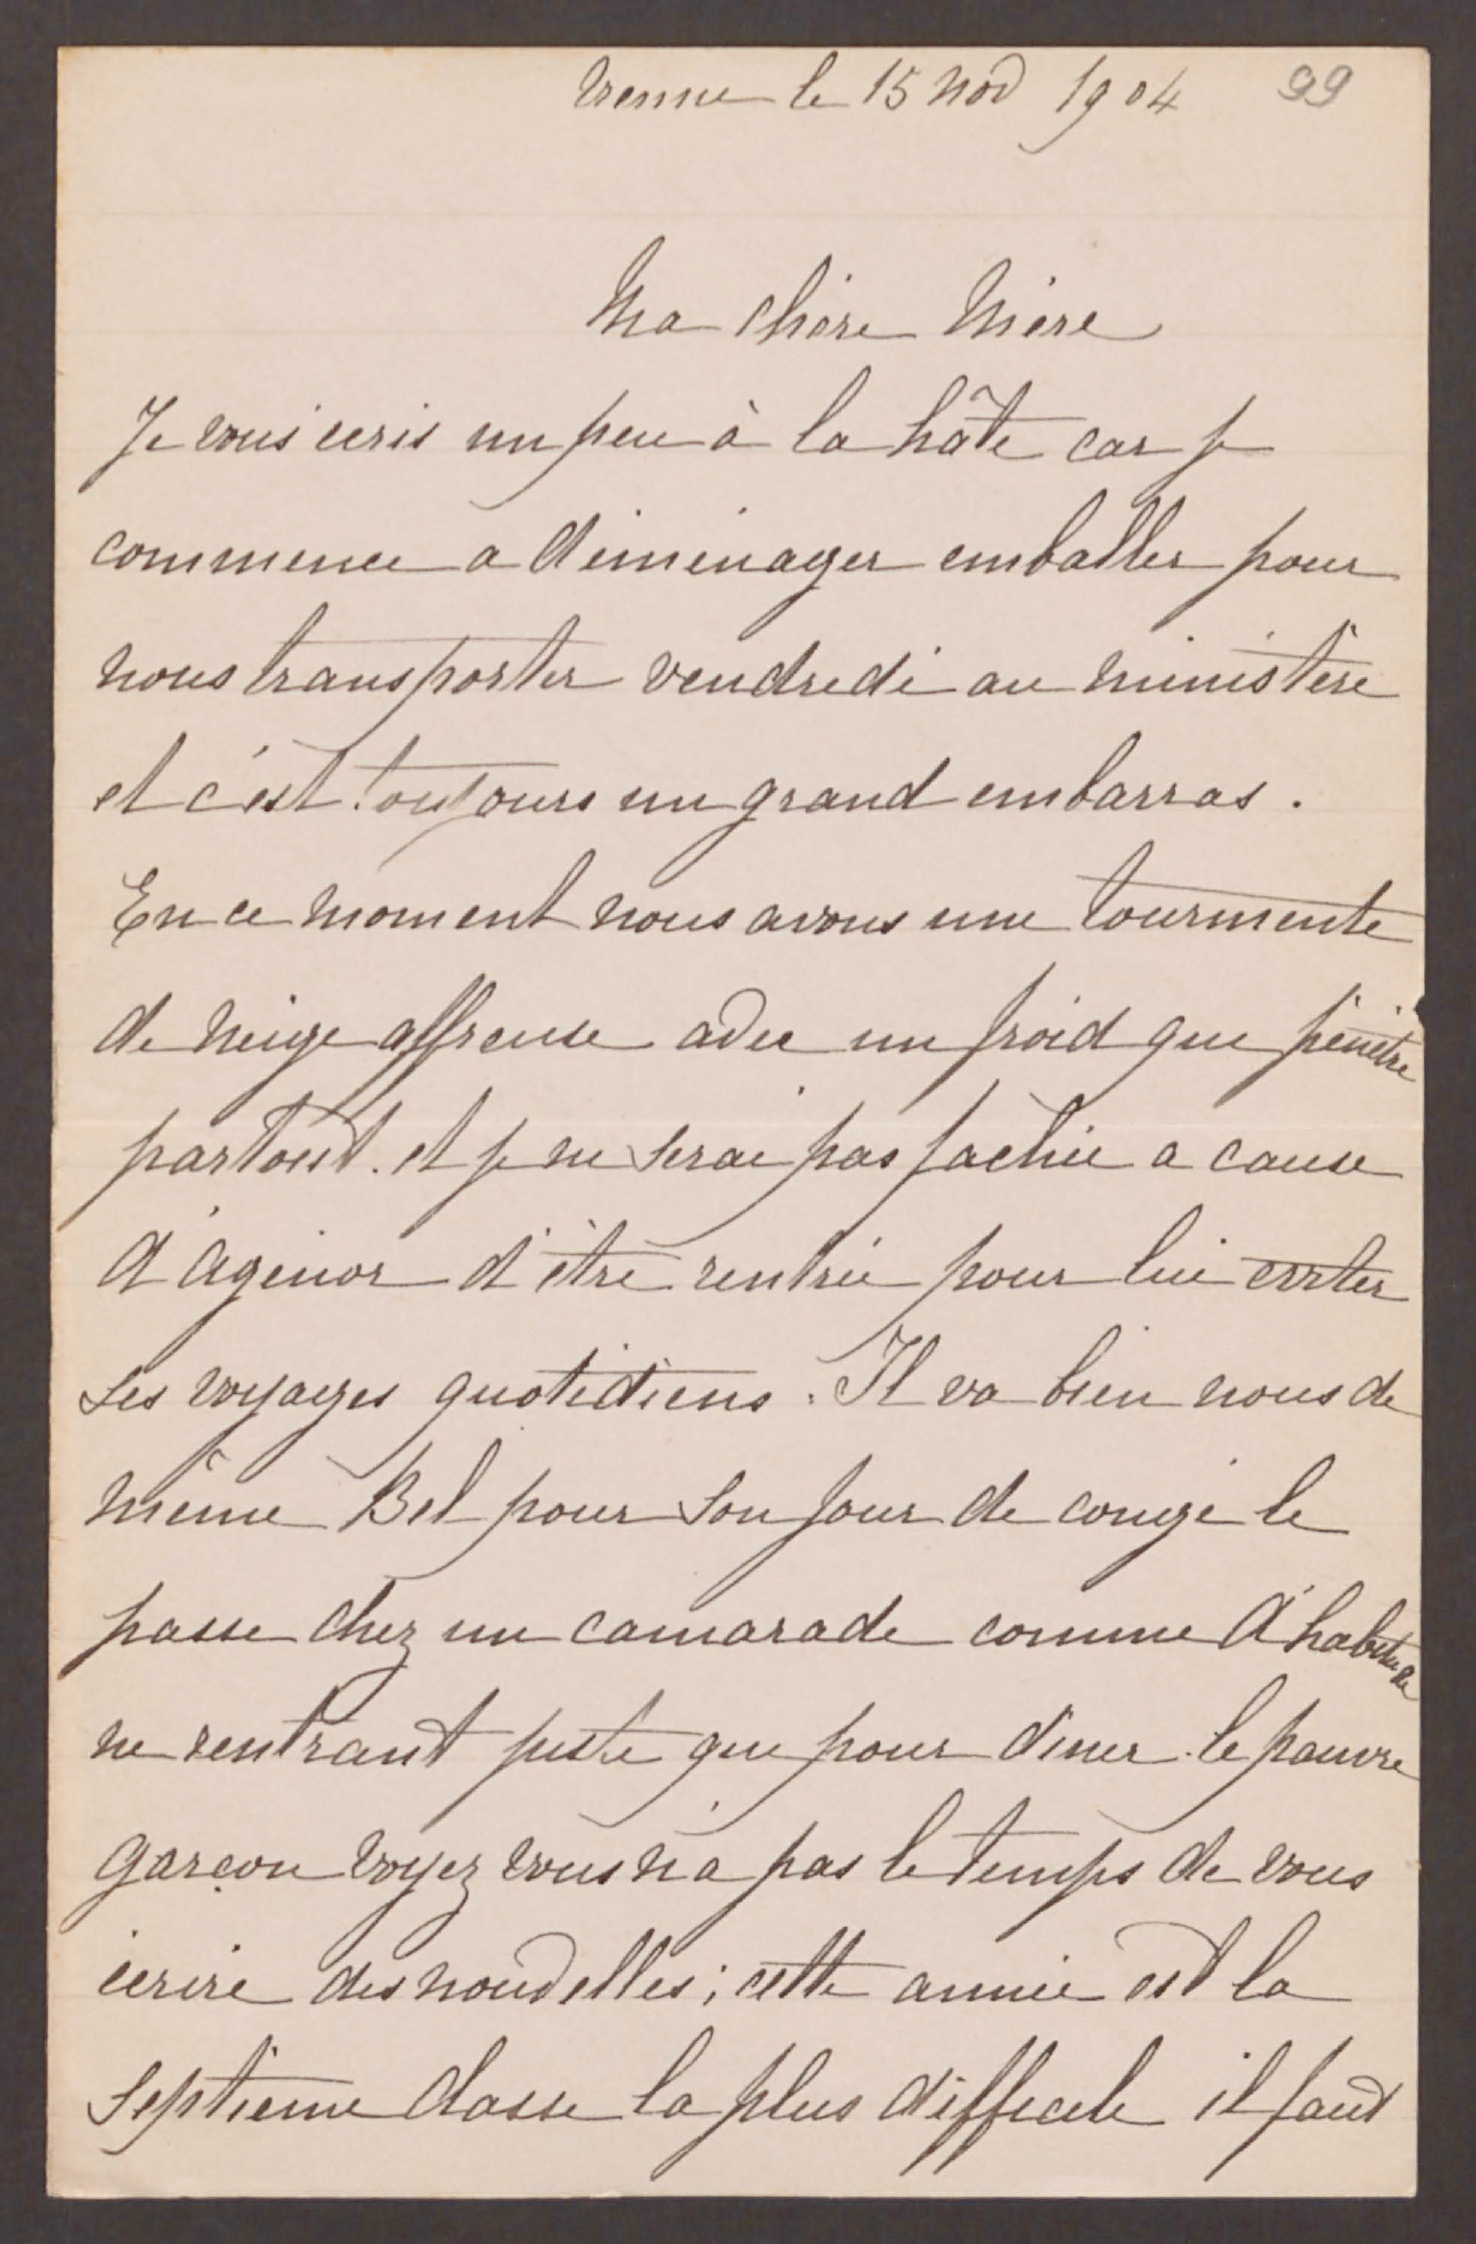 Vienne le 15 Nov 1904 99
Ma chère Mère
Je vous écris un peu à la hâte car je
commence a déménager emballer pour
nous transporter vendredi au ministère
et c'est toujours un grand embarras.
En ce moment nous avons une tourmente
de neige affreuse avec un froid que pénètre
partout. et je ne serai pas fachée a cause
d'Agénor d'être rentrée pour lui eviter
ses voyages quotidiens. Il va bien nous de
même Bel pour son jour de congé le
passe chez un camarade comme d'habitude
ne rentrant juste que pour diner. le pauvre
garçon voyez vous n'a pas le temps de vous
écrire des nouvelles; cette année est la
septième classe la plus difficile il faut